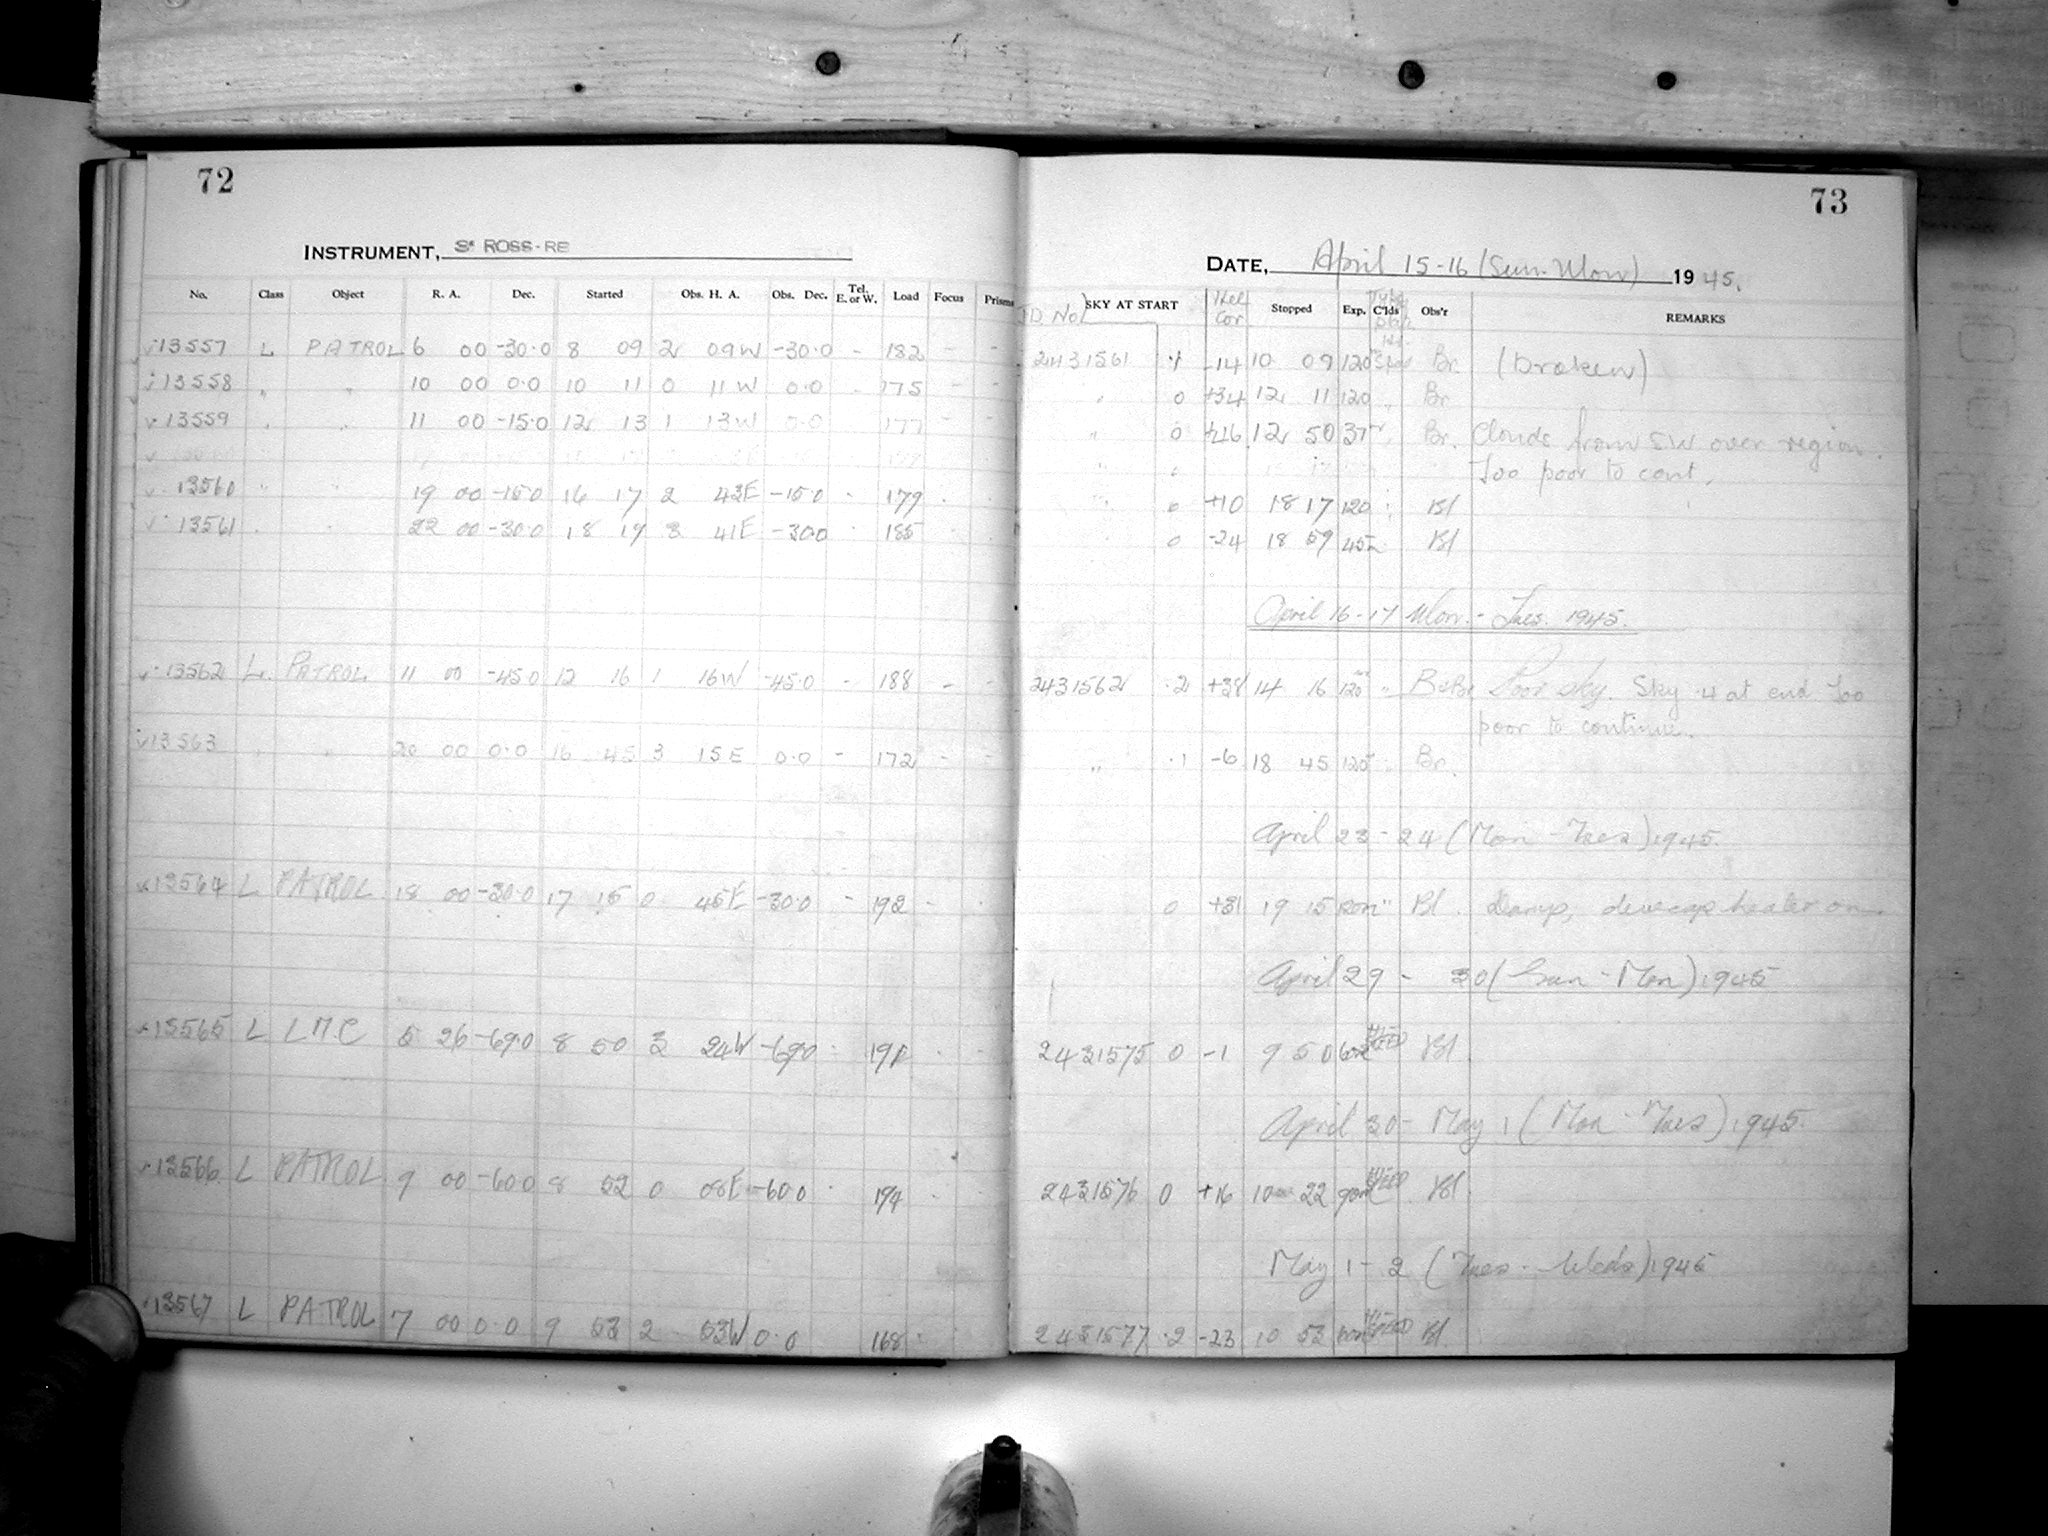 72
INSTRUMENT, ROSS-RE
No. Class Object R. A. Dec. Started Obs. H. A. Obs. Dec. Tel. E. or W. Load Focus Prisms
13557 L PATROL 6 00 -30.0 8 09 2 09W -30.0 - 182 - -
13558 " " 10 00 0.0 10 11 0 11W 0.0 - 175 - -
13559 " " 11 00 -15.0 12 13 1 13W 0.0 177 - -
13560 " " 19 00 -15.0 16 17 2 43E -15.0 - 179
13561 22 00 -30.0 18 19 3 41E -30.0 185
13562 L. PATROL 11 00 -45.0 12 16 1 16W -45.0 - 188 - -
13563 " " 20 00 0.0 16 45 3 15E 0.0 - 172 - -
13564 L PATROL 18 00 -30.0 17 15 0 45E -30.0 - 192 - -
13565 L LMC 5 26 -69.0 8 50 3 24W -69.0 - 191 - -
13566 L PATROL 9 00 -60.0 8 52 0 08E -60.0 - 194 - -
13567 L PATROL 7 00 0.0 9 53 2 53W 0.0 168
73
DATE, April 15-16 (Sun-Mon) 1945.
JD No. SKY AT START Stopped Exp. C'lds Obs'r REMARKS
2431561 -14 10 09 120 Br. (Broken)
" 0 +34 12 11 120 " Br.
" 0 +46 12 50 37 " Br. Clouds from SW over region.
Too poor to cont.
" 0 +10 18 17 120 Bl
0 -24 18 59 45 Bl
April 16-17 Mon.-Tues. 1945.
2431562 .2 +38 14 16 120 " Poor sky. Sky .4 at end Too
poor to continue.
" .1 -6 18 45 120 " Br.
April 23-24 (Mon-Tues) 1945.
0 +31 19 15 120m " Bl. Damp, dewcap heater on.
April 29 - 30 (Sun-Mon) 1945
2431575 0 -1 9 50 60 Bl
April 30-May 1 (Mon-Tues) 1945.
2431576 0 +16 10 22 90m Bl
May 1-2 (Tues-Weds) 1945
2431577 .2 -23 10 53 60m Bl.